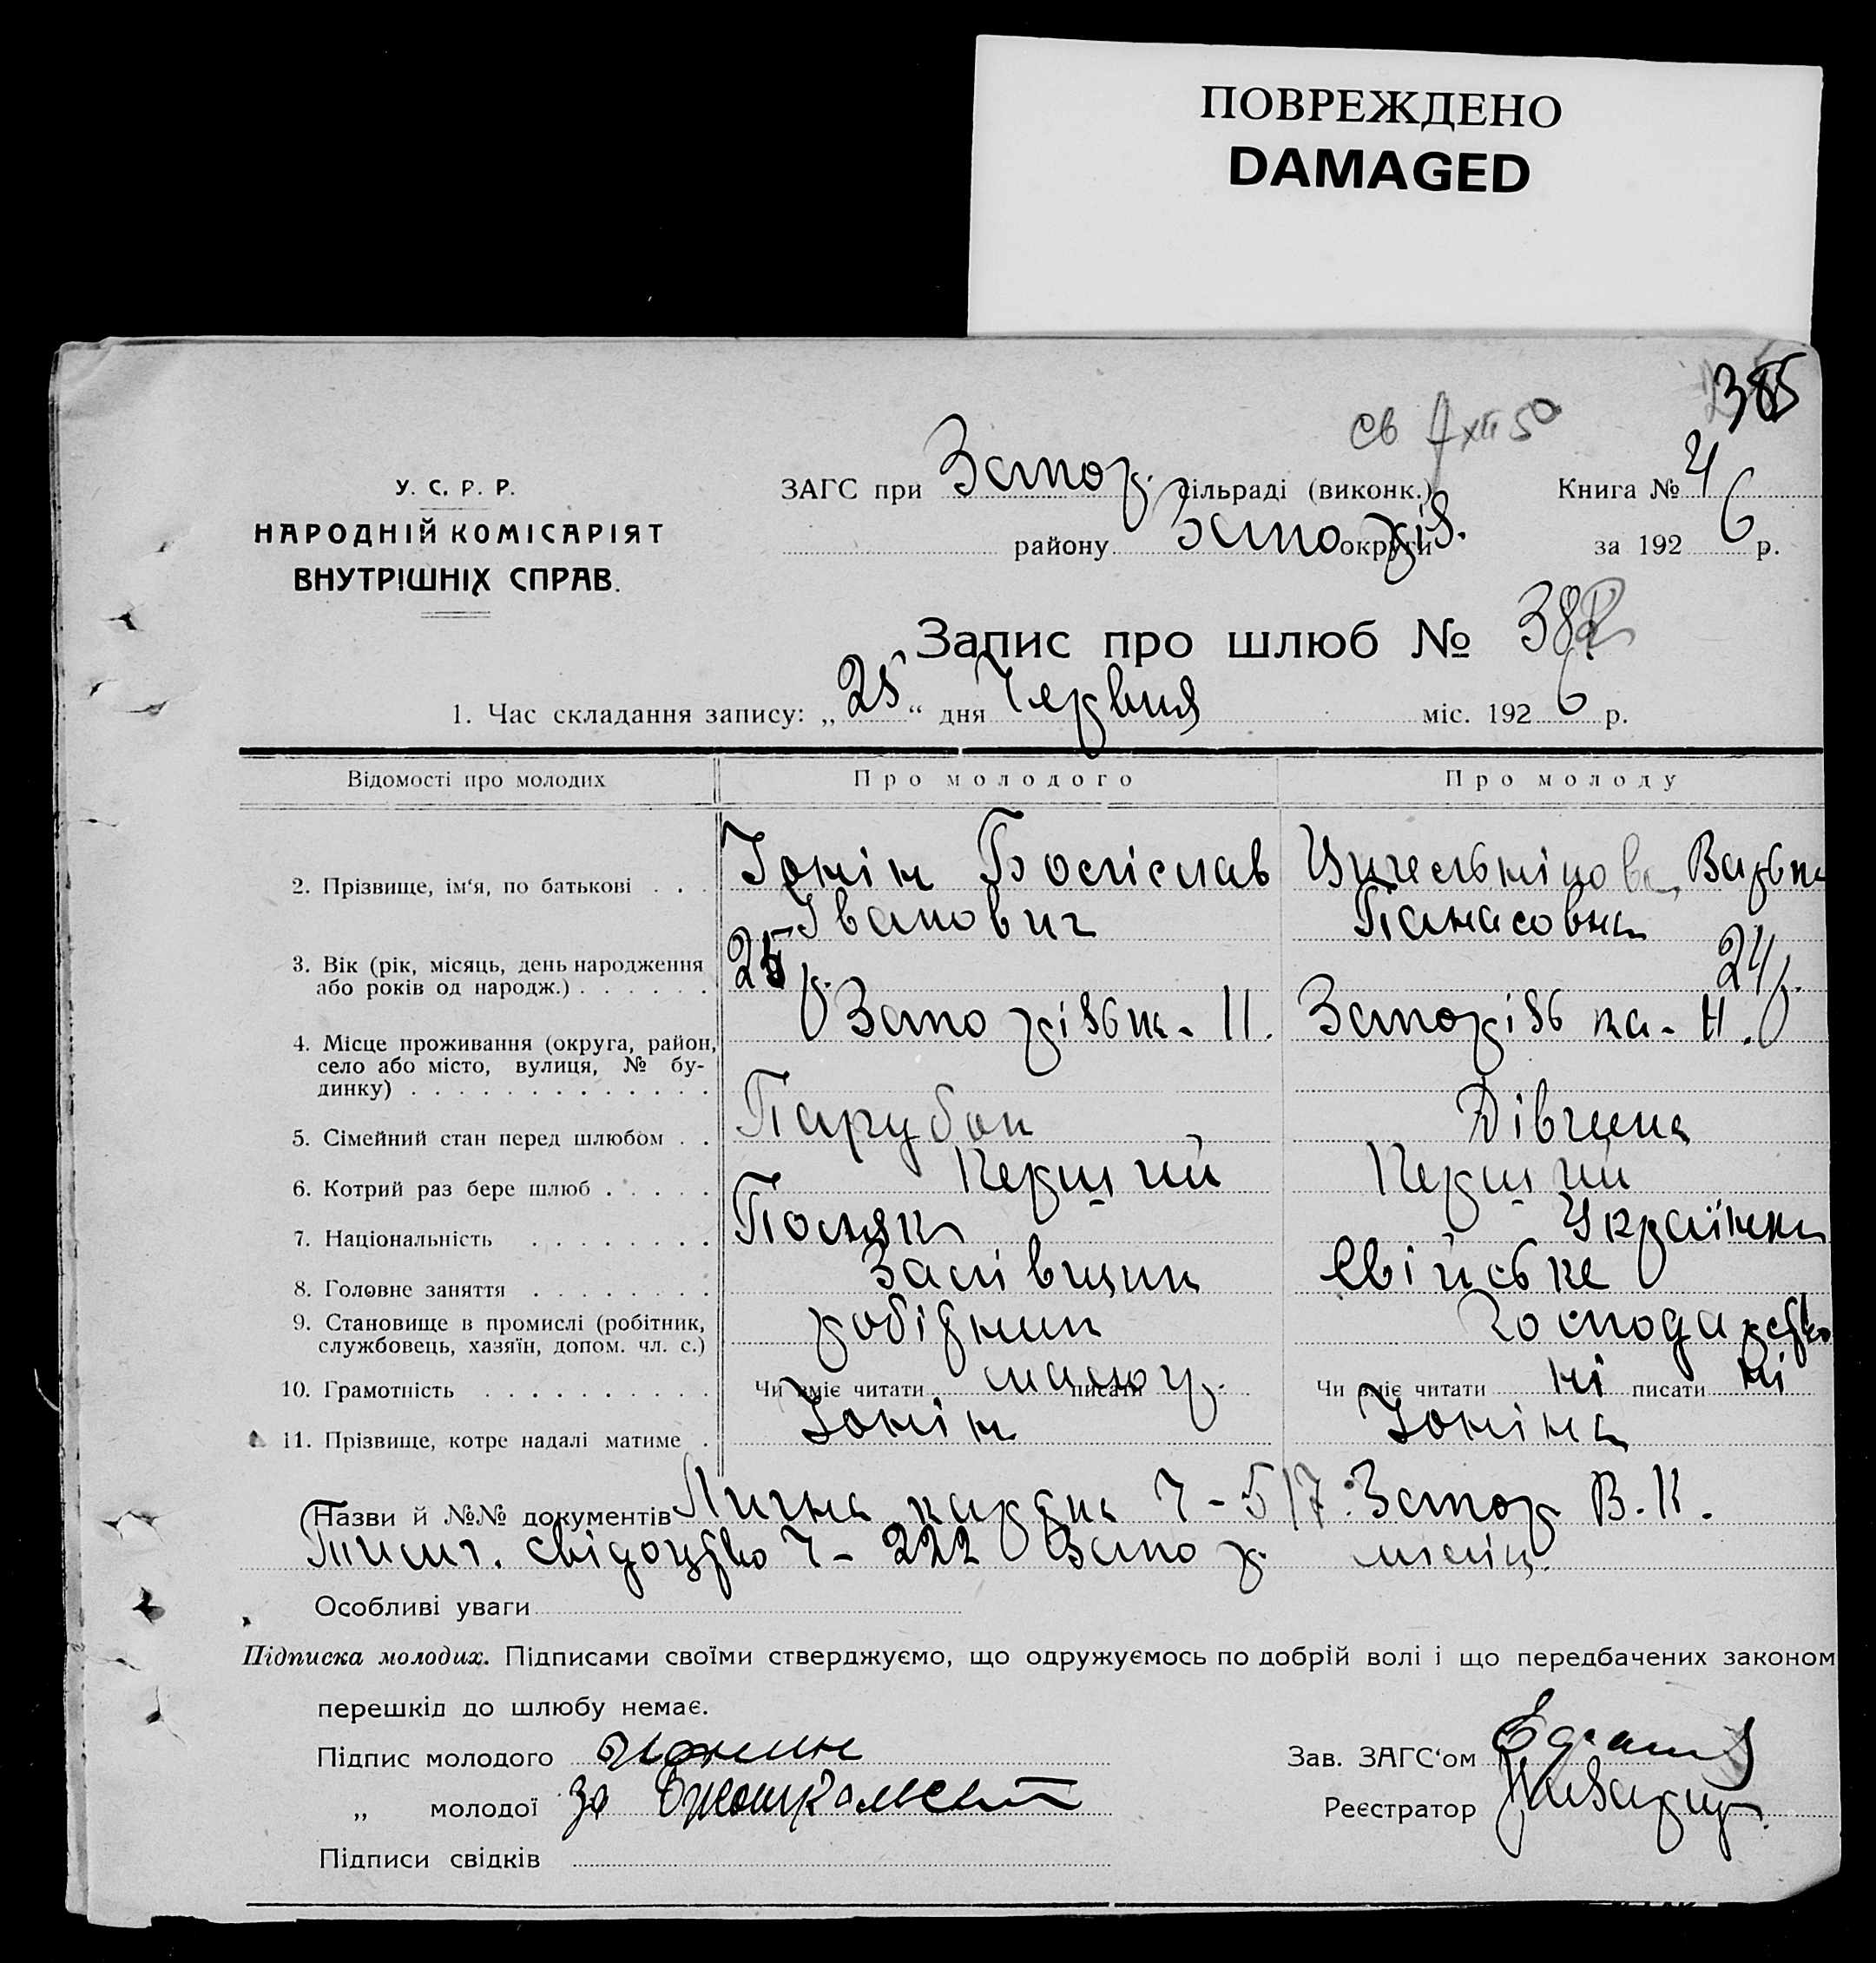 ПОВРЕЖДЕНО
DAMAGED
385
св 7 XII 50
У. С. Р. Р.
НАРОДНІЙ КОМІСАРІЯТ
ВНУТРІШНІХ СПРАВ.
ЗАГС при Запор. сільраді (виконк.) Книга № 4
району Запоріз. округи за 1926 р.
Запис про шлюб № 382
1. Час складання запису: „25“ дня Червня міс. 1926 р.
Відомості про молодих Про молодого Про молоду
2. Прізвище, ім‘я, по батькові . . . Іонін Болєіслав Іванович Варька Панасовна
3. Вік (рік, місяць, день народження
або років од народж.) . . . . . . 25 р. 24 р.
4. Місце проживання (округа, район,
село або місто, вулиця, № бу-
динку) . . . . . . . . . . . . .
5. Сімейний стан перед шлюбом . . Парубок Дівчина
6. Котрий раз бере шлюб . . . . . Перший Перший
7. Національність . . . . . . . . Поляк Українка
8. Головне заняття . . . . . . . . Свійське
9. Становище в промислі (робітник,
службовець, хазяїн, допом. чл. с.) робітник господарство
10. Грамотність . . . . . . . . . . Чи вміє читати малогр. писати Чи вміє читати ні писати ні
11. Прізвище, котре надалі матиме . Іонін Іоніна
Назви й №№ документів Лична картка Ч-517 Запор В.К.
Тимч. свідоцтво Ч-222 Запор
Особливі уваги
Підписка молодих. Підписами своїми стверджуємо, що одружуємось по добрій волі і що передбачених законом
перешкід до шлюбу немає.
Підпис молодого Ионин Зав. ЗАГС‘ом
„ молодої за Реєстратор
Підписи свідків